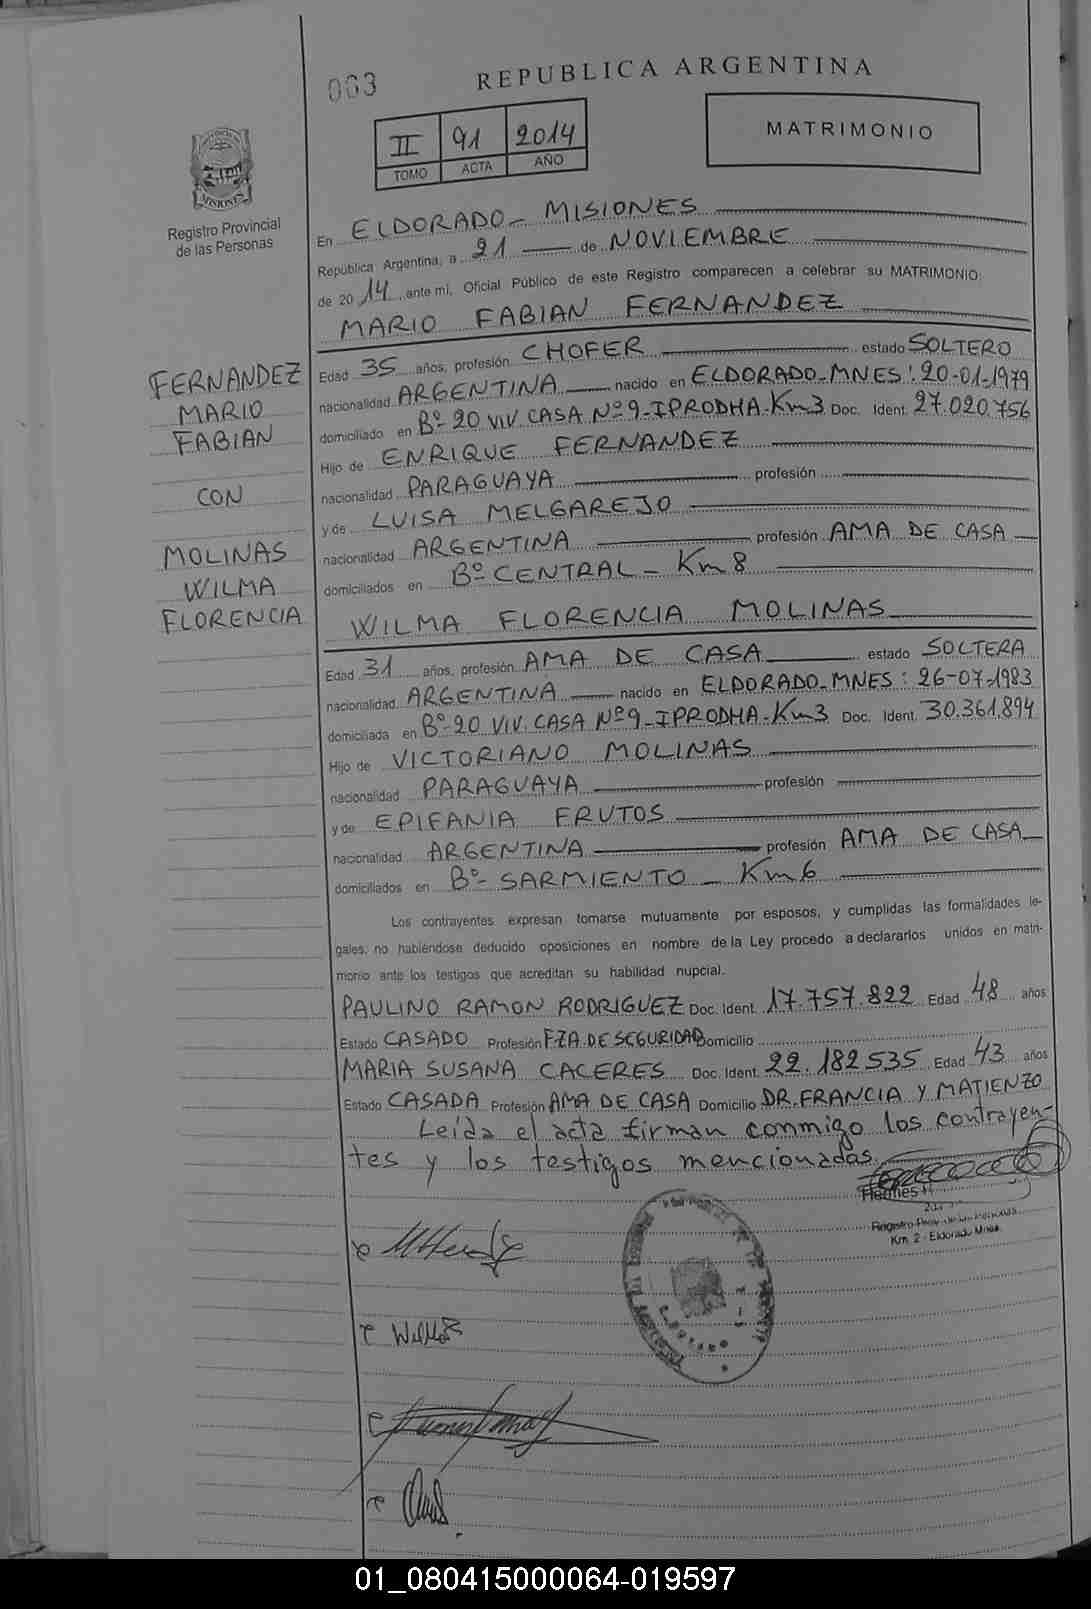 063
REPUBLICA ARGENTINA
II 91 2014
TOMO ACTA AÑO
MATRIMONIO
MISIONES
Registro Provincial
de las Personas
En ELDORADO - MISIONES
República Argentina, a 21 de NOVIEMBRE
de 2014, ante mi, Oficial Público de este Registro comparecen a celebrar su MATRIMONIO:
MARIO FABIAN FERNANDEZ
FERNANDEZ
MARIO
FABIAN
CON
MOLINAS
WILMA
FLORENCIA
Edad 35 años, profesión CHOFER estado SOLTERO
nacionalidad ARGENTINA nacido en ELDORADO-MNES: 20-01-1979
domiciliado en Bº- 20 VIV. CASA Nº9-IPRODHA-Km3 Doc. Ident. 27.020.756
Hijo de ENRIQUE FERNANDEZ
nacionalidad PARAGUAYA profesión
y de LUISA MELGAREJO
nacionalidad ARGENTINA profesión AMA DE CASA
domiciliados en Bº CENTRAL - Km 8
WILMA FLORENCIA MOLINAS
Edad 31 años, profesión AMA DE CASA estado SOLTERA
nacionalidad ARGENTINA nacido en ELDORADO-MNES: 26-07-1983
domiciliada en Bº-20 VIV. CASA Nº9-IPRODHA-Km3 Doc. Ident. 30.361.894
Hijo de VICTORIANO MOLINAS
nacionalidad PARAGUAYA profesión
y de EPIFANIA FRUTOS
nacionalidad ARGENTINA profesión AMA DE CASA
domiciliados en Bº- SARMIENTO - Km 6
Los contrayentes expresan tomarse mutuamente por esposos, y cumplidas las formalidades le-
gales, no habiéndose deducido oposiciones en nombre de la Ley procedo a declararlos unidos en matri-
monio ante los testigos que acreditan su habilidad nupcial.
PAULINO RAMON RODRIGUEZ Doc. Ident. 17.757.822 Edad 48 años
Estado CASADO Profesión FZA. DE SEGURIDAD Domicilio
MARIA SUSANA CACERES Doc. Ident. 22.182.535 Edad 43 años
Estado CASADA Profesión AMA DE CASA Domicilio DR. FRANCIA Y MATIENZO
Leída el acta firman conmigo los contrayen-
tes y los testigos mencionadas.
Registro Prov. de las Personas
Km. 2 - Eldorado Mnes.
01_080415000064-019597